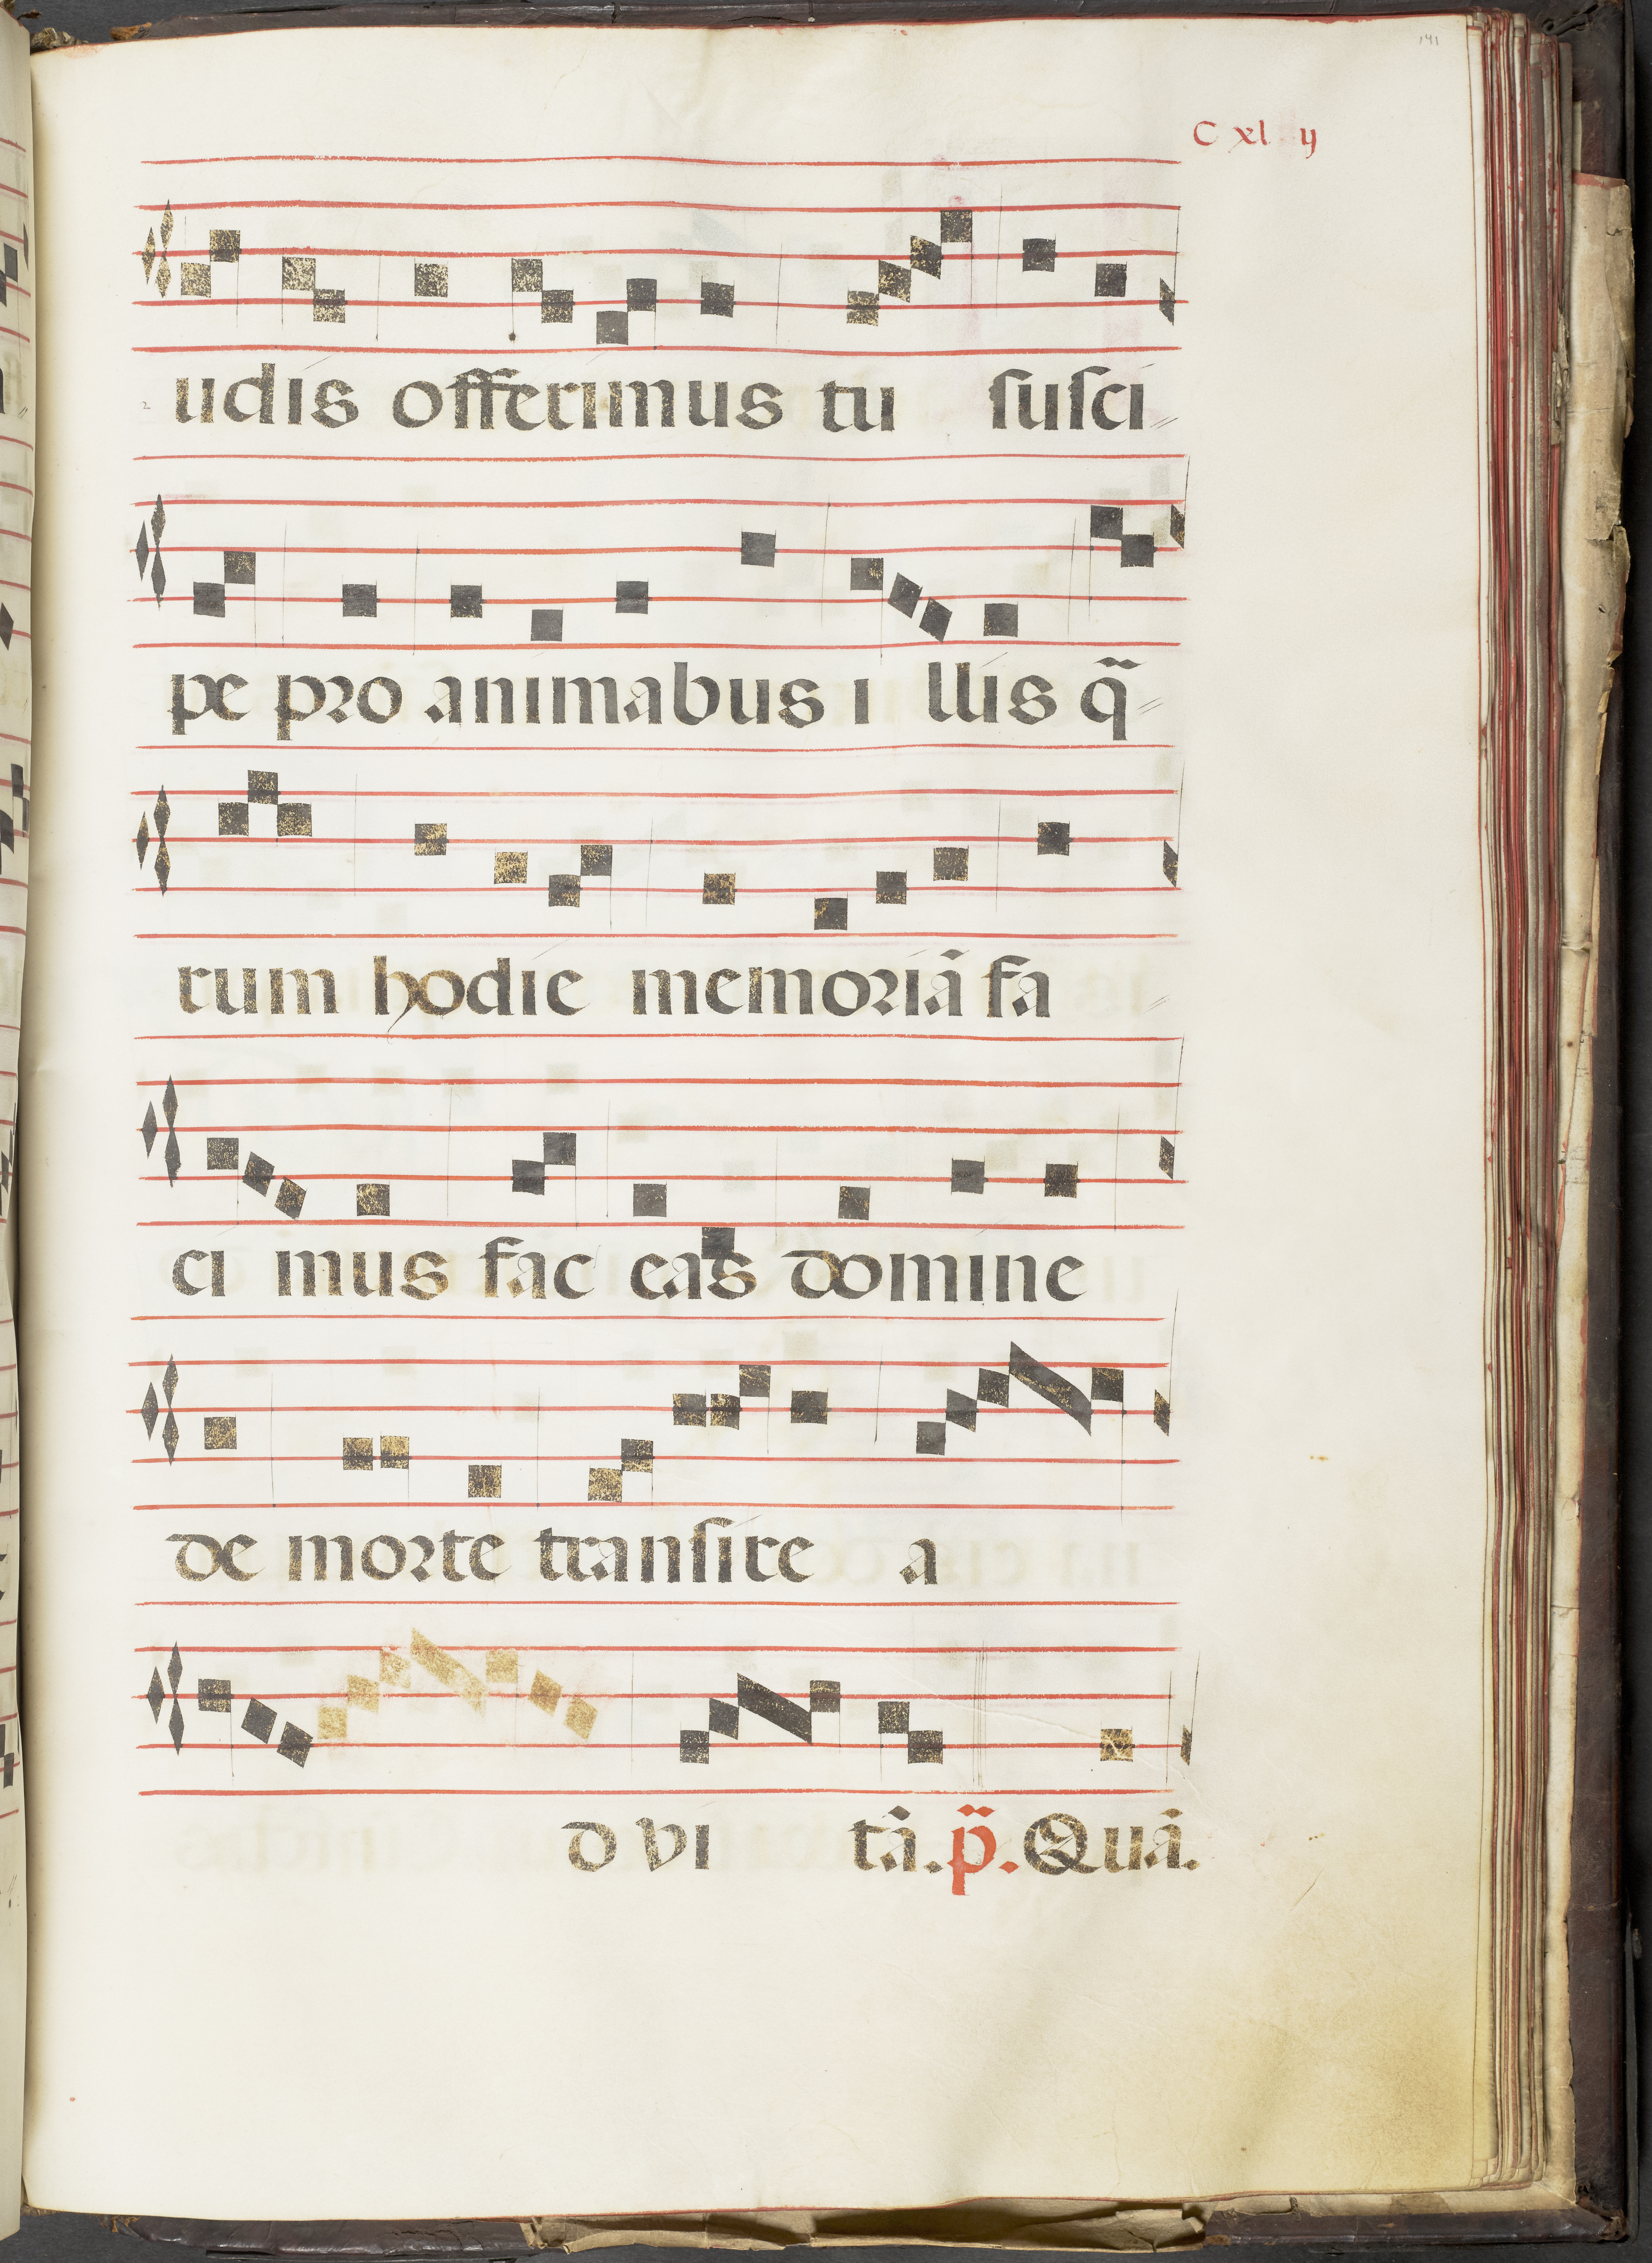 141
C xl y
udis offerimus tu suſci
pe pro animabus i llis q̃
rum hodie memoriã fa
ci mus fac eas domine
de morte tranſire a
d vi tã. p̃. Quã.